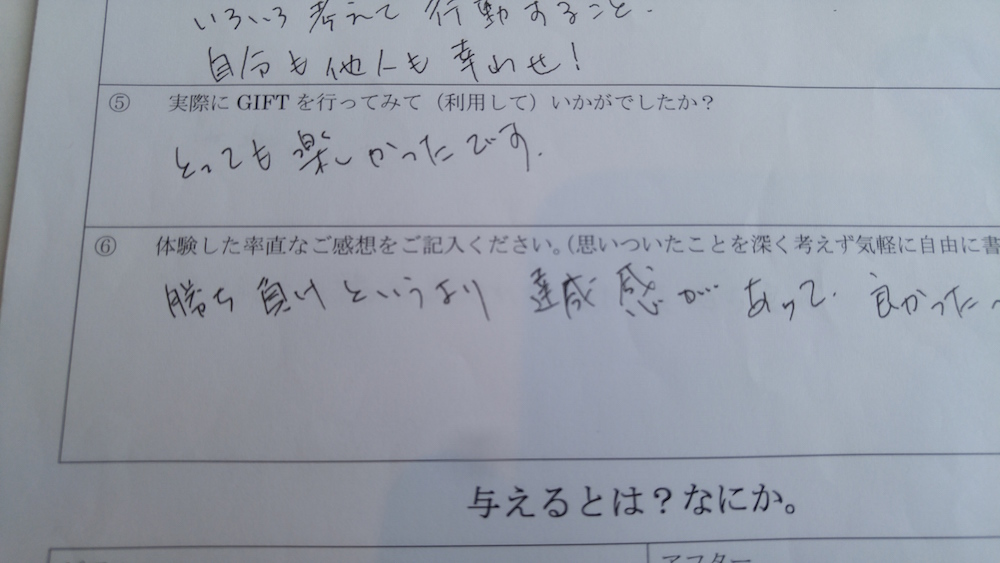 いろいろ考えて行動すること.
自分も他人も幸わせ!
⑤ 実際に GIFT を行ってみて（利用して）いかがでしたか？
とっても楽しかったです.
⑥ 体験した率直なご感想をご記入ください。（思いついたことを深く考えず気軽に自由に書
勝ち負けというより達成感があって.良かった
与えるとは？なにか。
アフター